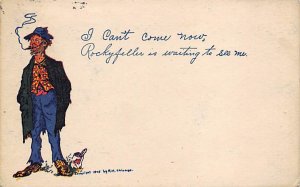 I Can't come now,
Rockyfeller is waiting to see me.